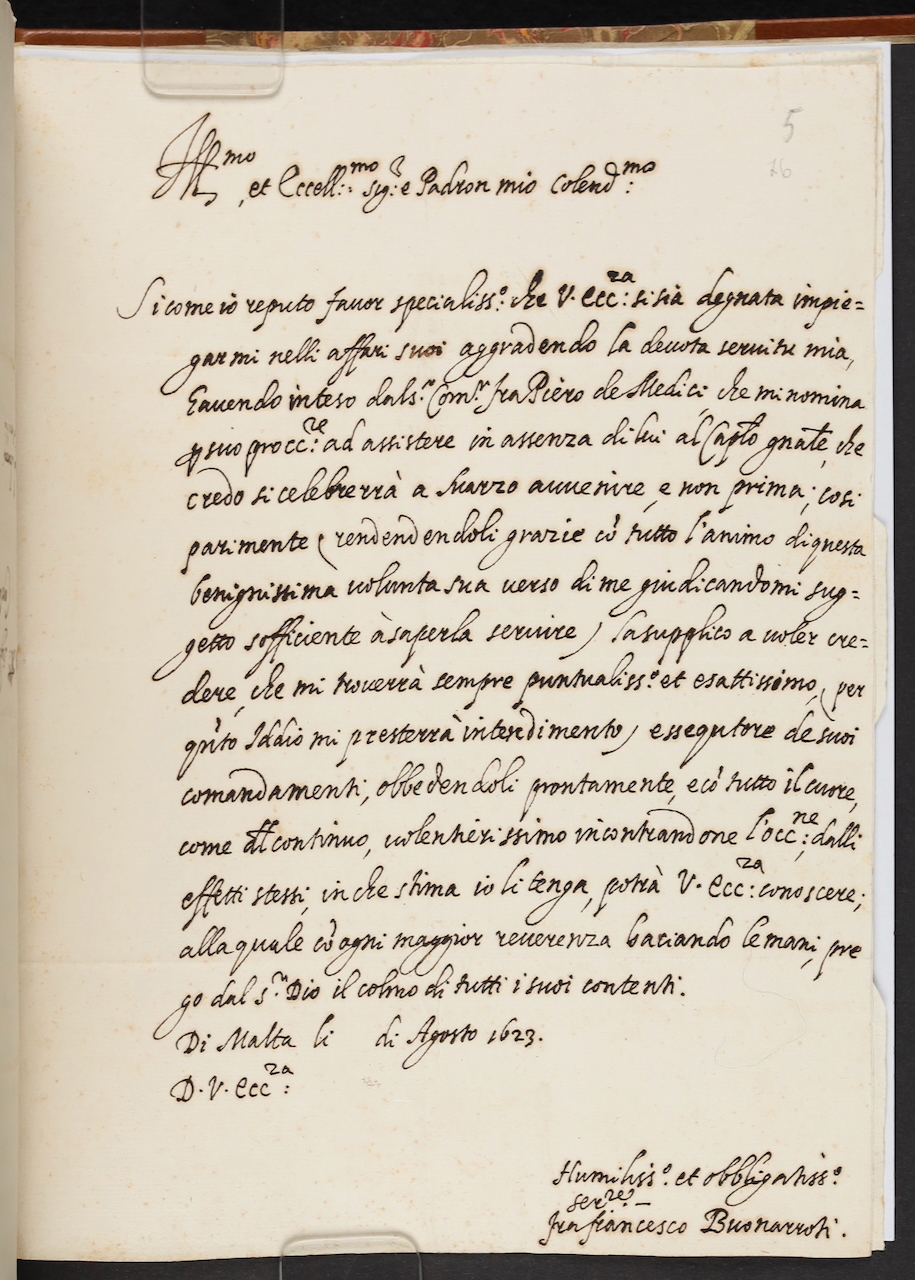 5
76
Ill.mo et Eccell:mo sig:r e Padron mio Colend:mo
Si come io reputo favor specialiss:o che V. Ecc:za si sia degnata impie=
garmi nelli affari suoi aggradendo la devota servitu mia,
havendo inteso dal s.r Com.r fra Piero de Medici, che mi nomina
p suo procc:re ad assistere in assenza di lui al Capto gnale, che
credo si celebrerrà a Marzo avvenire, e non prima; cosi
parimente (rendendendoli grazie cò tutto l'animo di questa
benignissima volunta sua verso di me giudicandomi sug=
getto sofficiente à saperla servire) la supplico a voler cre=
dere, che mi troverrà sempre puntualiss:o et esattissimo, (per
qto Iddio mi presterrà intendimento) essequtore de suoi
comandamenti, obbedendoli prontamente, e cò tutto il cuore,
come al continuo, volentierissimo incontrandone l'occ:ne; dalli
effetti stessi, in che stima io li tenga, potrà V. Ecc:za conoscere;
alla quale cò ogni maggior reverenza baciando le mani, pre
go dal s.r Dio il colmo di tutti i suoi contenti.
Di Malta li di Agosto 1623.
D. V. Ecc:za
Humiliss:o et obbligatiss:o
ser:re
fra francesco Buonarroti.